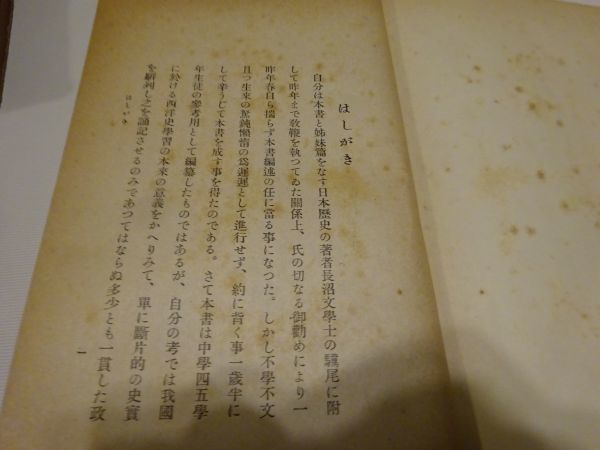 はしがき
自分は本書と姉妹篇をなす日本歷史の著者長沼文學士の驥尾に附
して昨年まで敎鞭を執つてゐた關係上、氏の切なる御勸めにより一
昨年春自ら揣らず本書編述の任に當る事になつた。しかし不學不文
且つ生來の駑鈍懶惰の爲遲遲として進行せず、約に背く事一歲半に
して辛うじて本書を成す事を得たのである。さて本書は中學四五學
年生徒の參考用として編纂したものではあるが、自分の考では我國
に於ける西洋史學習の本來の意義をかへりみて、單に斷片的の史實
を解列し之を誦記させるのみであつてはならぬ多少とも一貫した政
はしがき
一